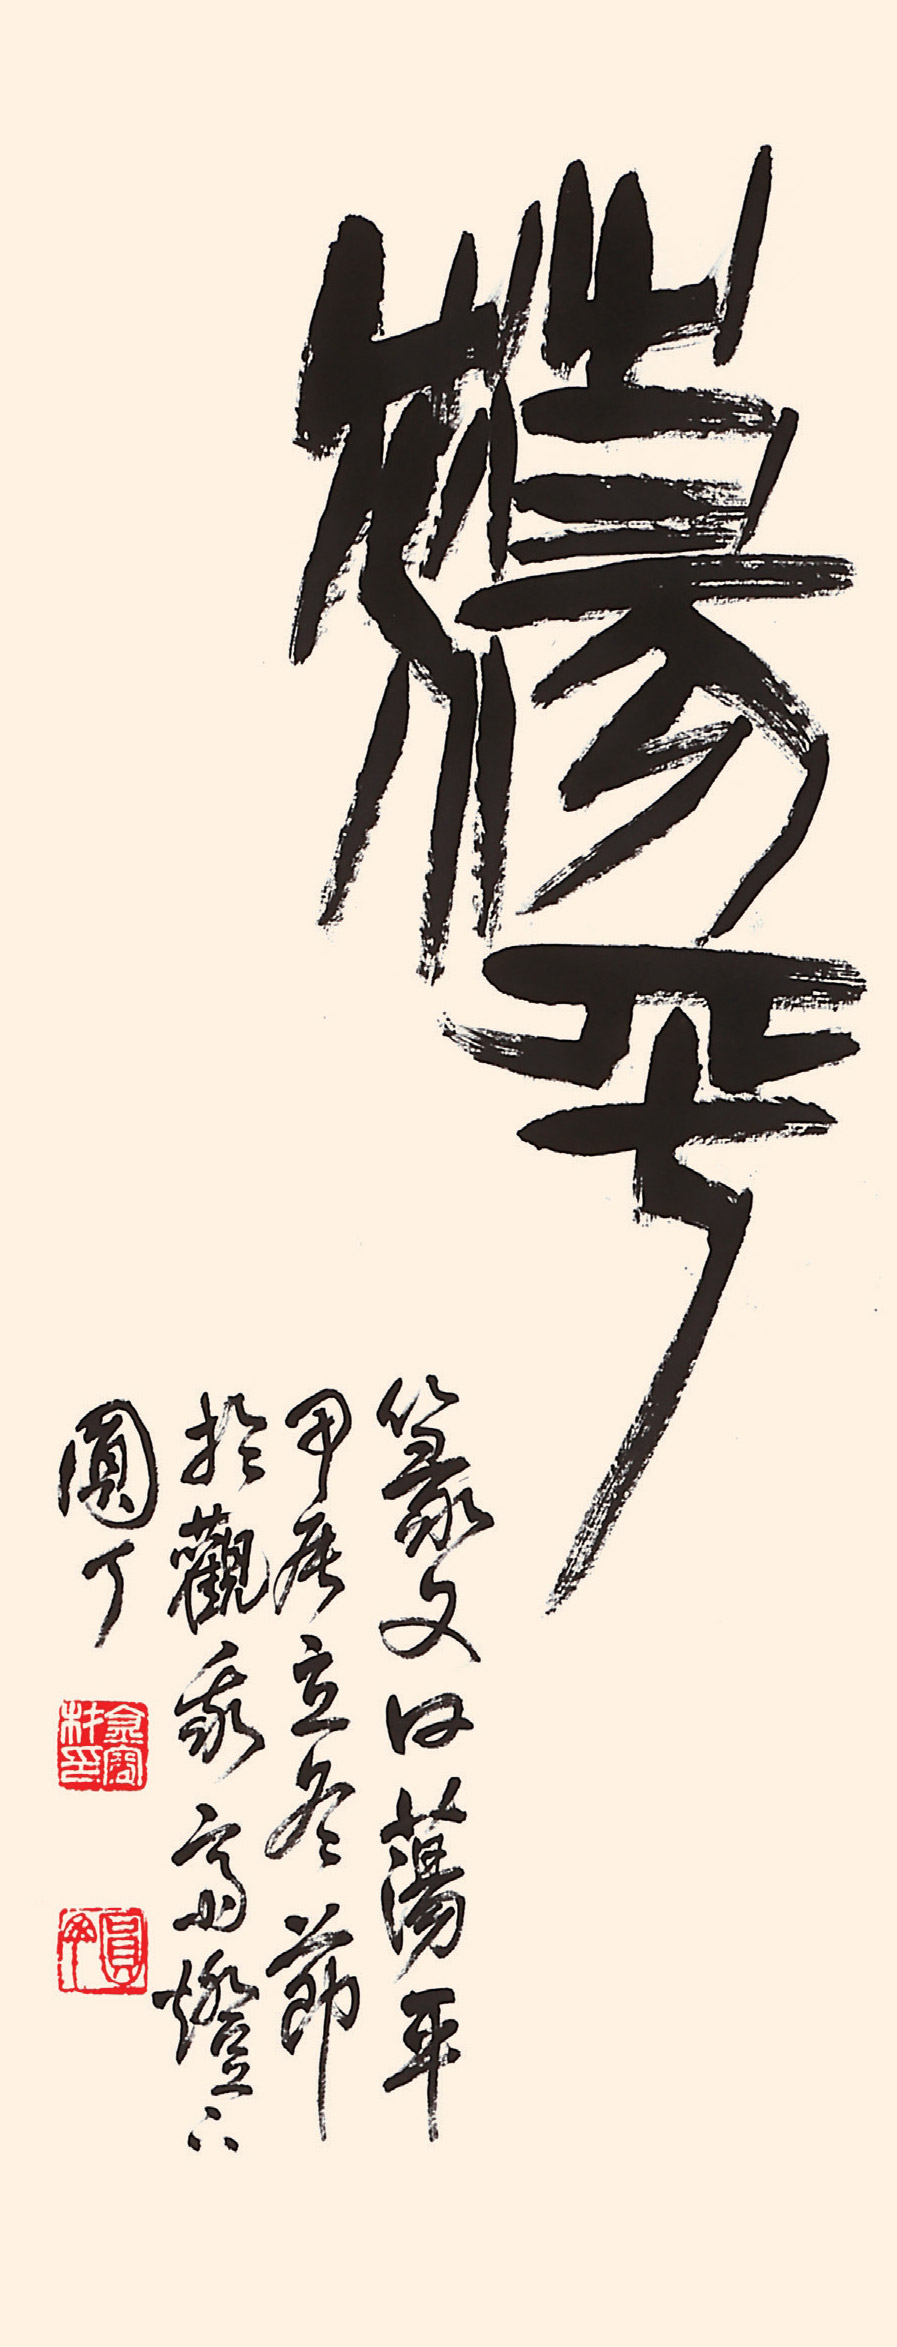 蕩平
篆文曰蕩平
甲辰立冬節
於觀我齋燈下
圓丁